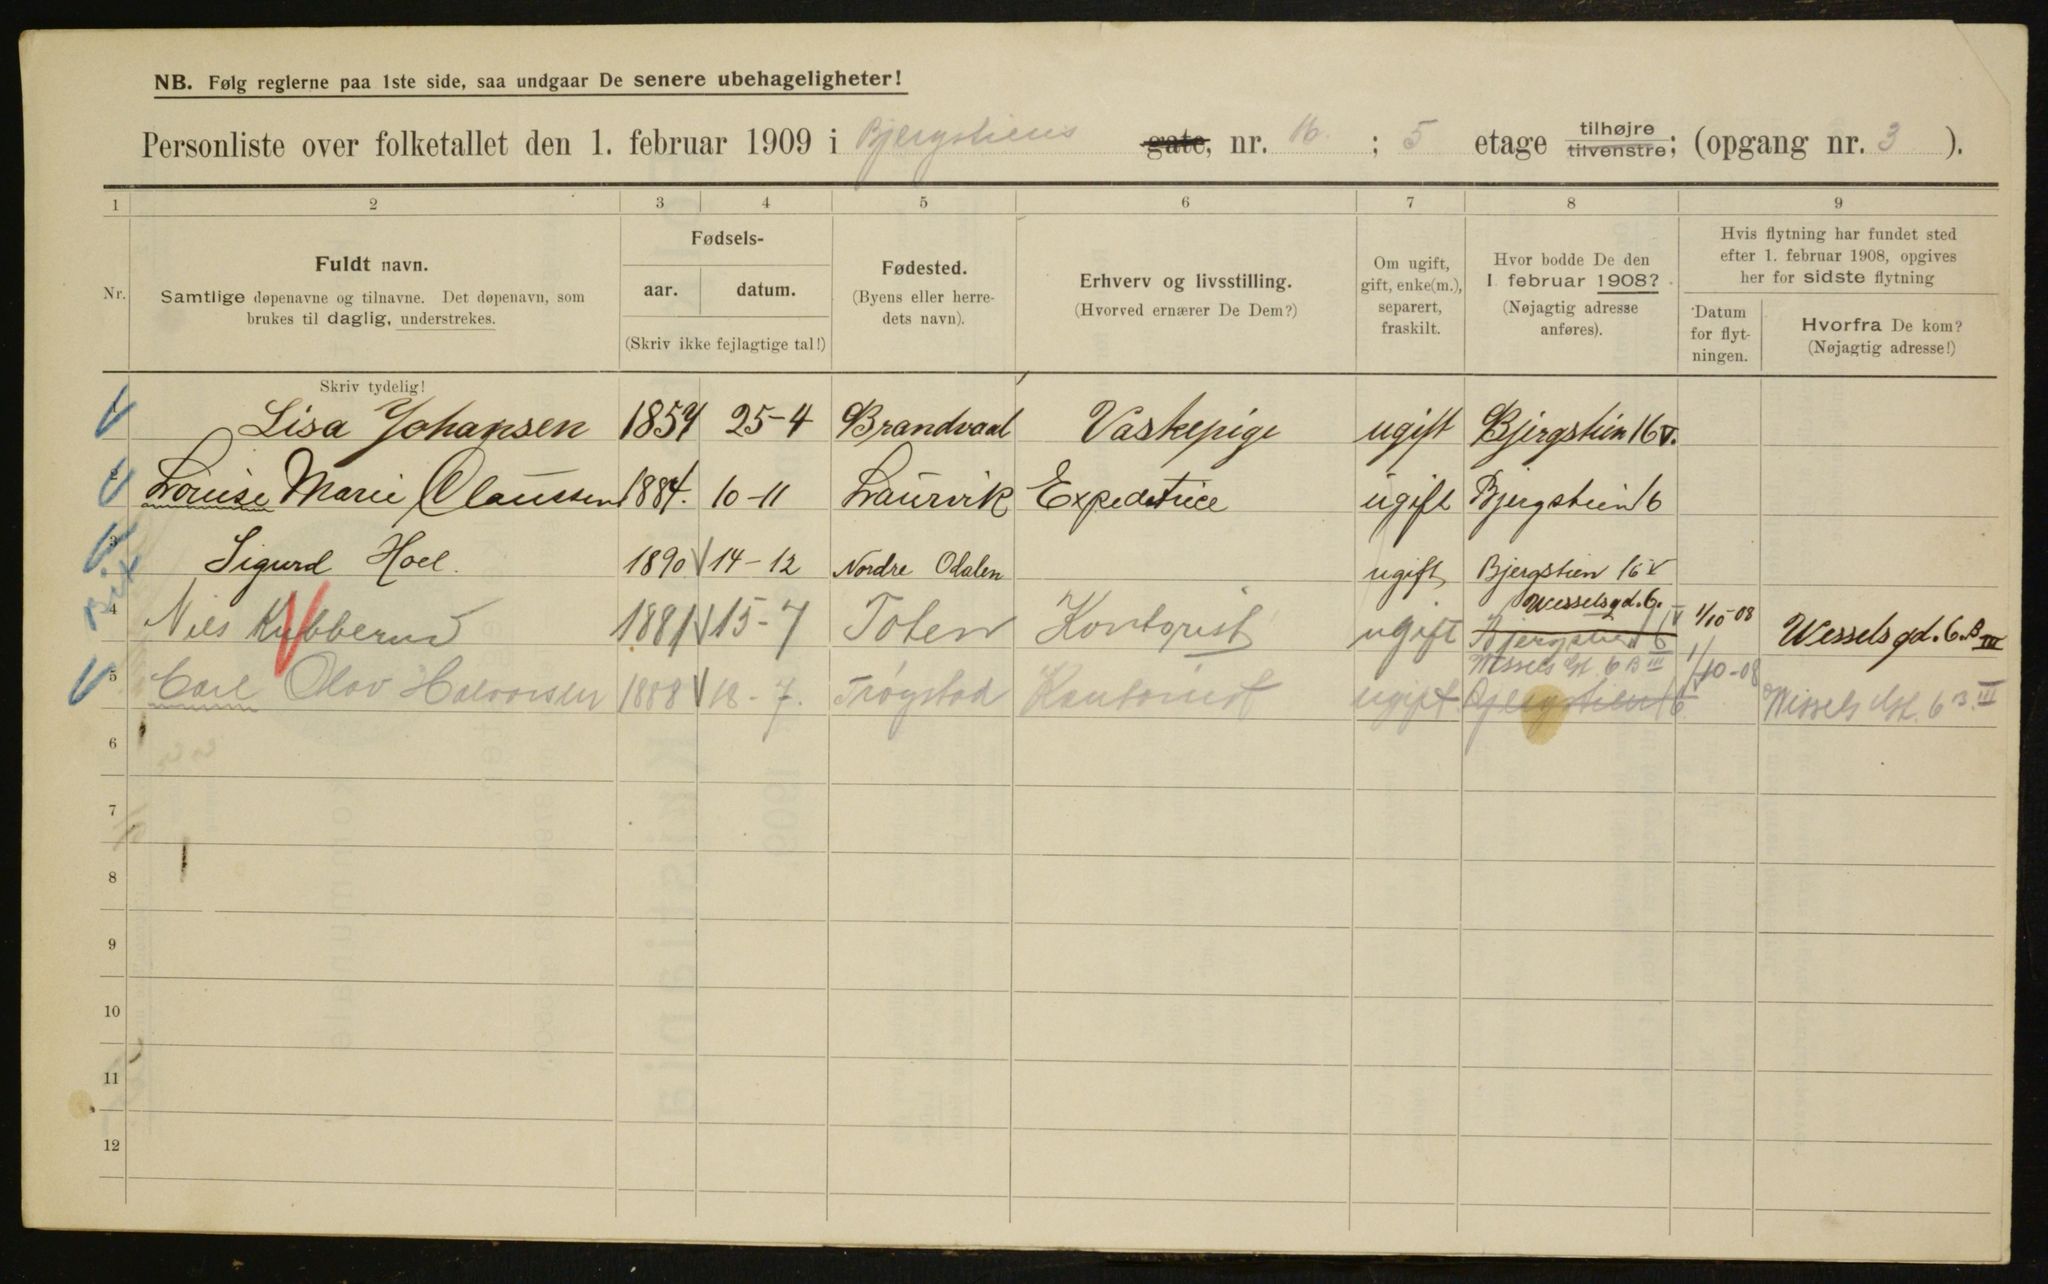 NB. Følg reglerne paa 1ste side, saa undgaar De senere ubehageligheter!
Personliste over folketallet den 1. februar 1909 i Bjergstiens gate, nr. 16. ; 5 etage tilhøjre tilvenstre; (opgang nr. 3 ).
1 2 3 4 5 6 7 8 9
Nr.
Fuldt navn.
Samtlige døpenavne og tilnavne. Det døpenavn, som
brukes til daglig, understrekes.
Skriv tydelig!
Fødsels-
aar. datum.
(Skriv ikke fejlagtige tal!)
Fødested.
(Byens eller herre-
dets navn).
Erhverv og livsstilling.
(Hvorved ernærer De Dem?)
Om ugift,
gift, enke(m.),
separert,
fraskilt.
Hvor bodde De den
1. februar 1908?
(Nøjagtig adresse
anføres).
Hvis flytning har fundet sted
efter 1. februar 1908, opgives
her for sidste flytning
Datum
for flyt-
ningen.
Hvorfra De kom?
(Nøjagtig adresse!)
1 Lisa Johansen 1857 25-4 Brandvaal Vaskepige ugift Bjergstien 16 V.
2 Louise Marie Claussen 1884. 10-11 Laurvik Expeditrice ugift Bjergstien 16
3 Sigurd Hoel. 1890 14-12 Nordre Odalen ugift Bjergstien 16 V
4 Niels Kubberud 1881 15-7 Toten Kontorist ugift Wesselsgd. 6. Bjergstien 16 V 1/10-08 Wessels gd. 6. B III
5 Carl Olav Halvorsen 1888 18-7. Trøgstad Kontorist ugift Wessels Gd. 6 B III Bjergstien 16 V 1/10-08 Wessels Gd. 6 B III
6
7
8
9
10
11
12